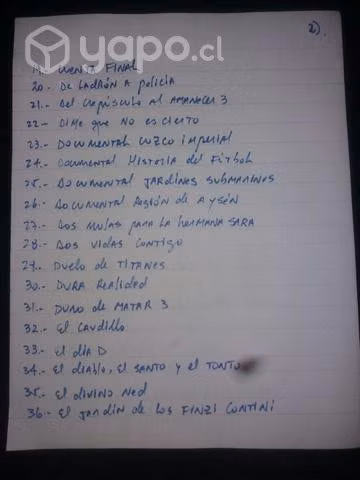 yapo.cl
2).
19.- CUENTA FINAL
20.- DE LADRÓN A POLICÍA
21.- DEL CREPÚSCULO AL AMANECER 3
22.- DIME QUE NO ES CIERTO
23.- DOCUMENTAL CUZCO IMPERIAL
24.- DOCUMENTAL HISTORIA DEL FÚTBOL
25.- DOCUMENTAL JARDINES SUBMARINOS
26.- DOCUMENTAL REGIÓN DE AYSÉN
27.- DOS MULAS PARA LA HERMANA SARA
28.- DOS VIDAS CONTIGO
29.- DUELO DE TITANES
30.- DURA REALIDAD
31.- DURO DE MATAR 3
32.- EL CAUDILLO
33.- EL DÍA D
34.- EL DIABLO, EL SANTO Y EL TONTO
35.- EL DIVINO NED
36.- EL JARDÍN DE LOS FINZI CONTINI